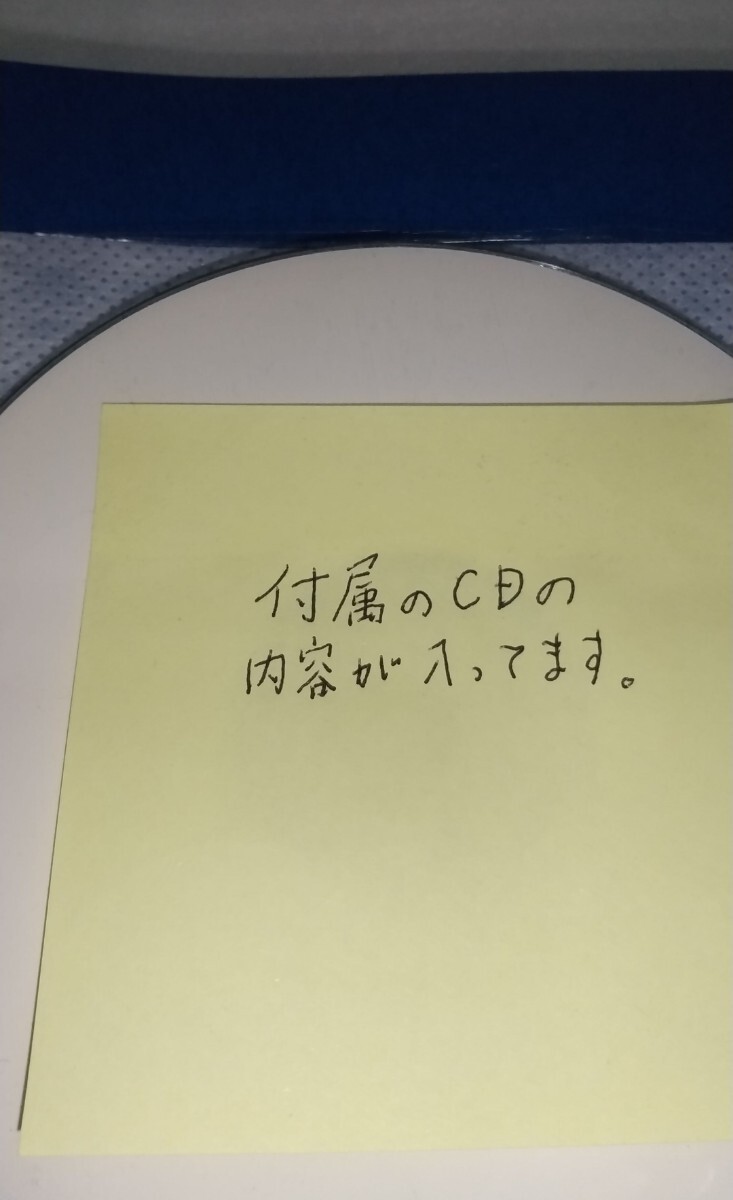 付属のCDの
内容が入ってます。